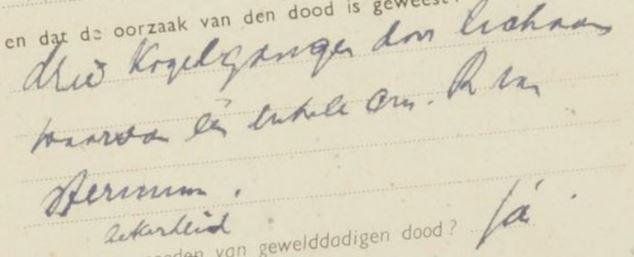 en dat de oorzaak van den dood is geweest:
drie Kogelgangen door lichaam
waarvan één enkele
Sternum.
zekerheid
van gewelddadigen dood? ja.